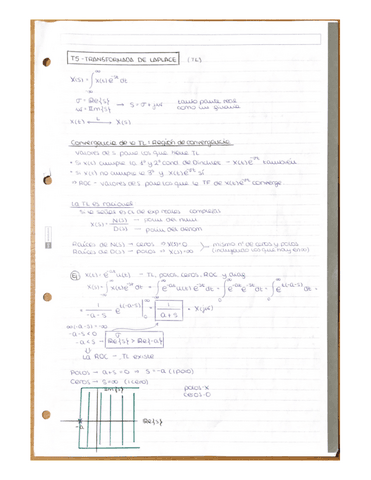 T5 - TRANSFORMADA DE LAPLACE (TL)
X(s) = ∫ x(t) e^-st dt
σ = Re{s}
ω = Im{s} → s = σ + jω
x(t) ↔ X(s)
Convergencia de la TL = Región de convergencia
Valores de s para los que tiene TL
• Si x(t) cumple la 1ª y 2ª cond de Dirichlet → x(t) e^-σt también
• Si x(t) no cumple la 3ª y x(t) e^-σt sí
→ ROC = valores de s para los que la TF de x(t) e^-σt converge
La TL es racional
Si la señal es de exp reales complejas
X(s) = N(s) → polin del num
D(s) → polin del denom
Raíces de N(s) → ceros → X(s)=0
Raíces de D(s) → polos → X(s)=∞
mismo nº de ceros y polos
Ej x(t) = e^-at u(t) → TL, polos, ceros, ROC y diag
X(s) = ∫ x(t) e^-st dt = ∫ e^-at u(t) e^-st dt = ∫ e^-at e^-st dt = ∫ e^t(-a-s) dt =
= 1/(-a-s) e^t(-a-s) = 1/(a+s)
-a-s<0
-a<s → Re{s} > Re{-a}
La ROC → TL existe
Polos → a+s=0 → s=-a (1 polo)
Ceros → s=∞ (1 cero)
Im{s}
polos-x
ceros-o
-a
Re{s}